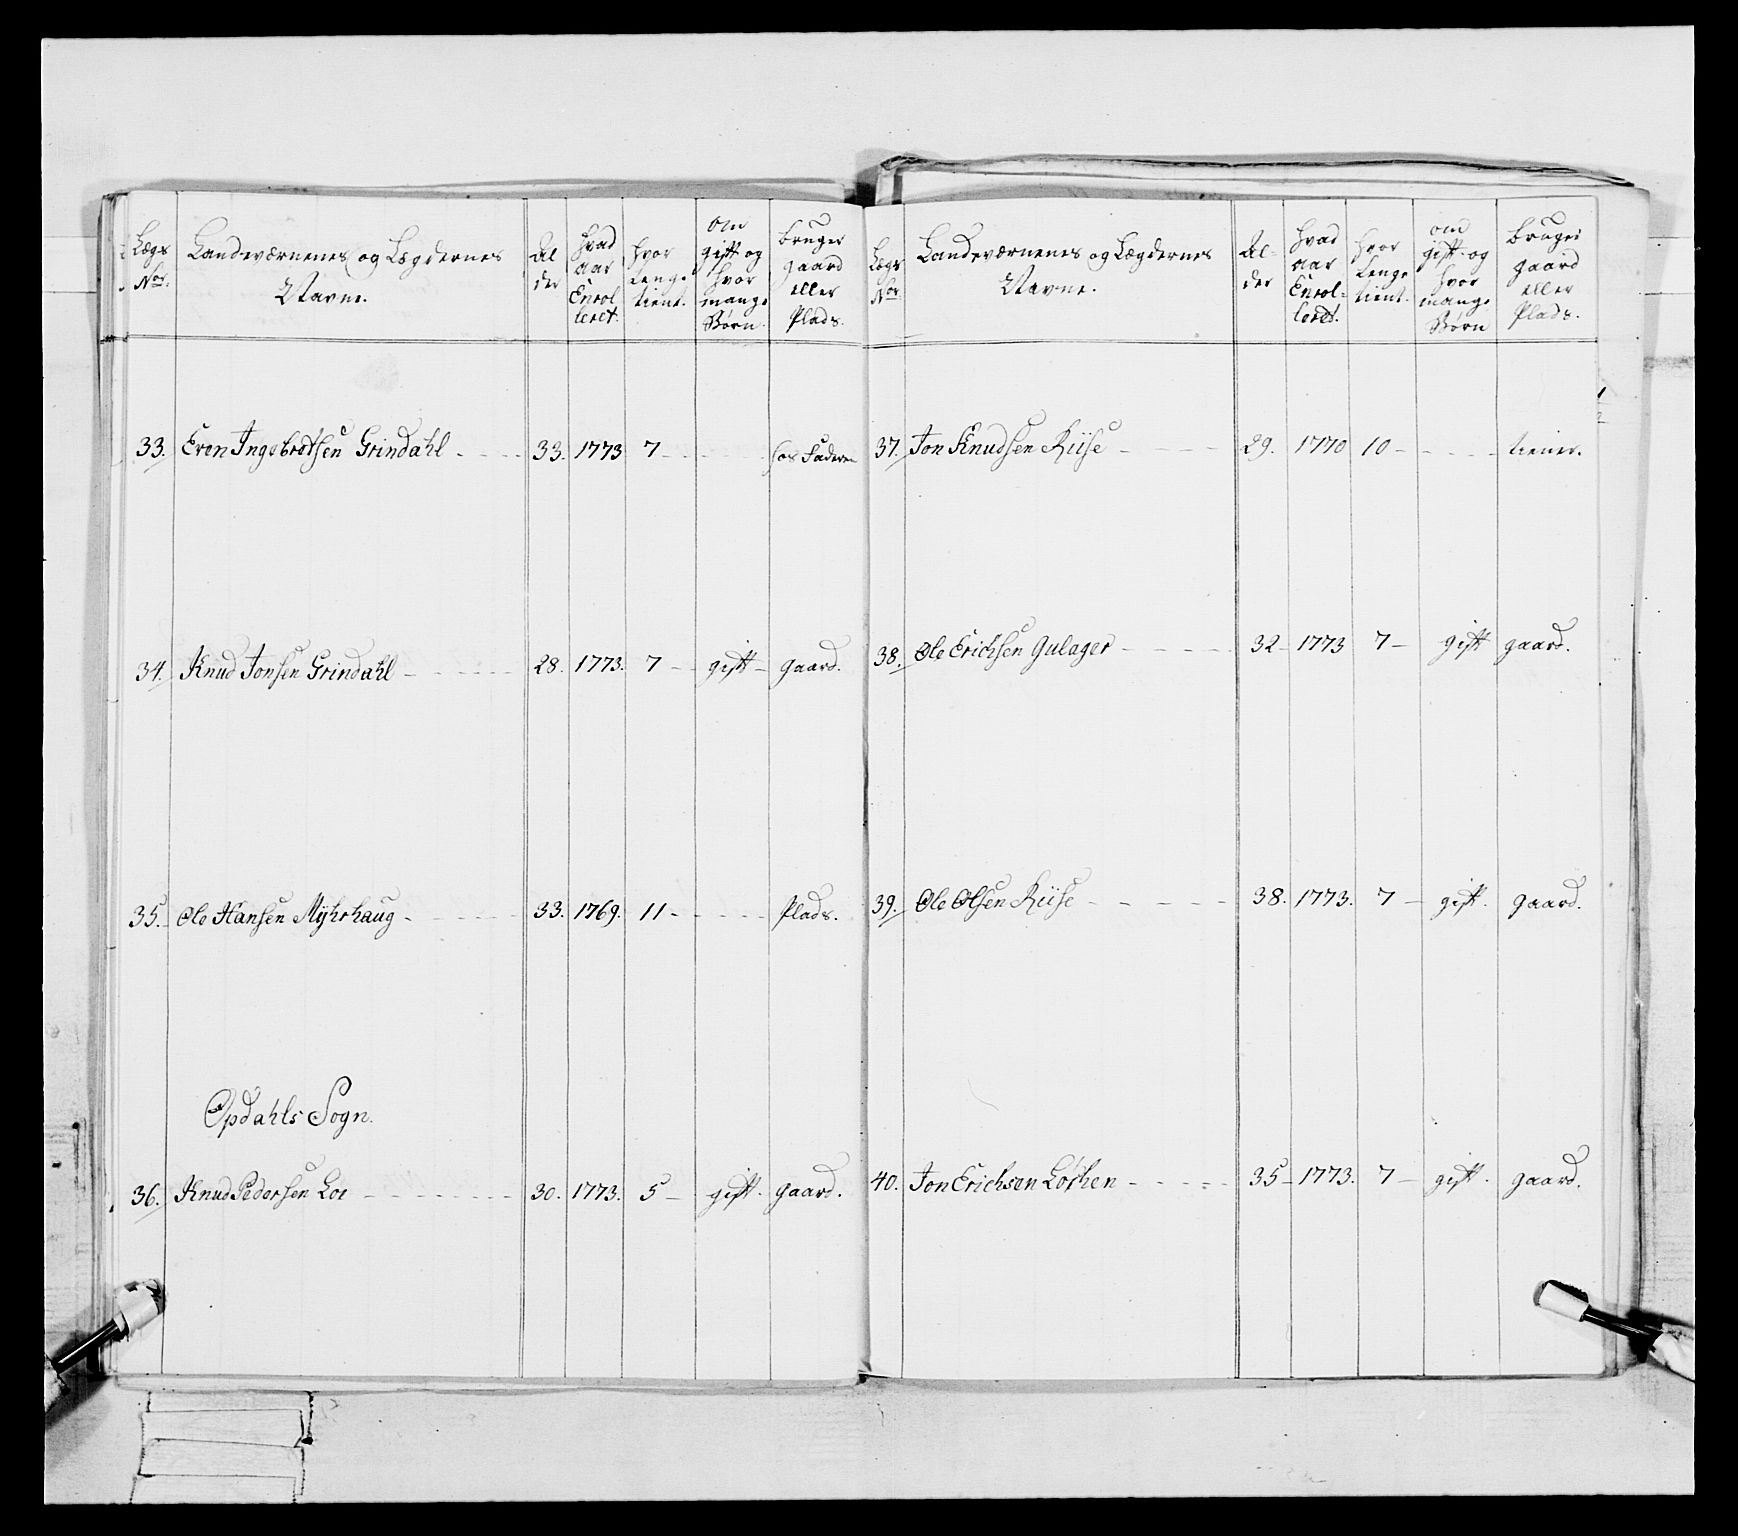 Lægs Nor. | Landeværnenes og Lægdernes Navne. | Al der | Hvad aar Enrol leret. | Hvor Lenge tient. | om gift og hvor mange Børn. | bruger gaard eller Plads.
33. Even Ingebrotsen Grindahl - - - - 33. 1773 7 - - - - hos Faderen
34. Knud Jonsen Grindahl - - - - - 28. 1773. 7 - gift - gaard.
35. Ole Hansen Myhrhaug - - - - - 33. 1769. 11 - - - - Plads.
Opdahls Sogn.
36. Knud Pedersen Loe - - - - - - - 30. 1773. 5 - gift. gaard.
Lægs Nor | Landeværnenes og Lægdernes Navne. | Al- der | Hvad aar Enrol- leret. | Hvor Lenge tient. | om gift og hvor mange Børn | bruger gaard eller Plads.
37. Jon Knudsen Riise - - - - 29. 1770 10 - - - - tiener.
38. Ole Erichsen Gulager - - - - - 32 - 1773 7 - gift gaard.
39. Ole Olsen Riise - - - - - 38. 1773. 7 - gift. gaard.
40. Jon Erichsen Løchen - - - - - 35 - 1773. 7 - gift. gaard.